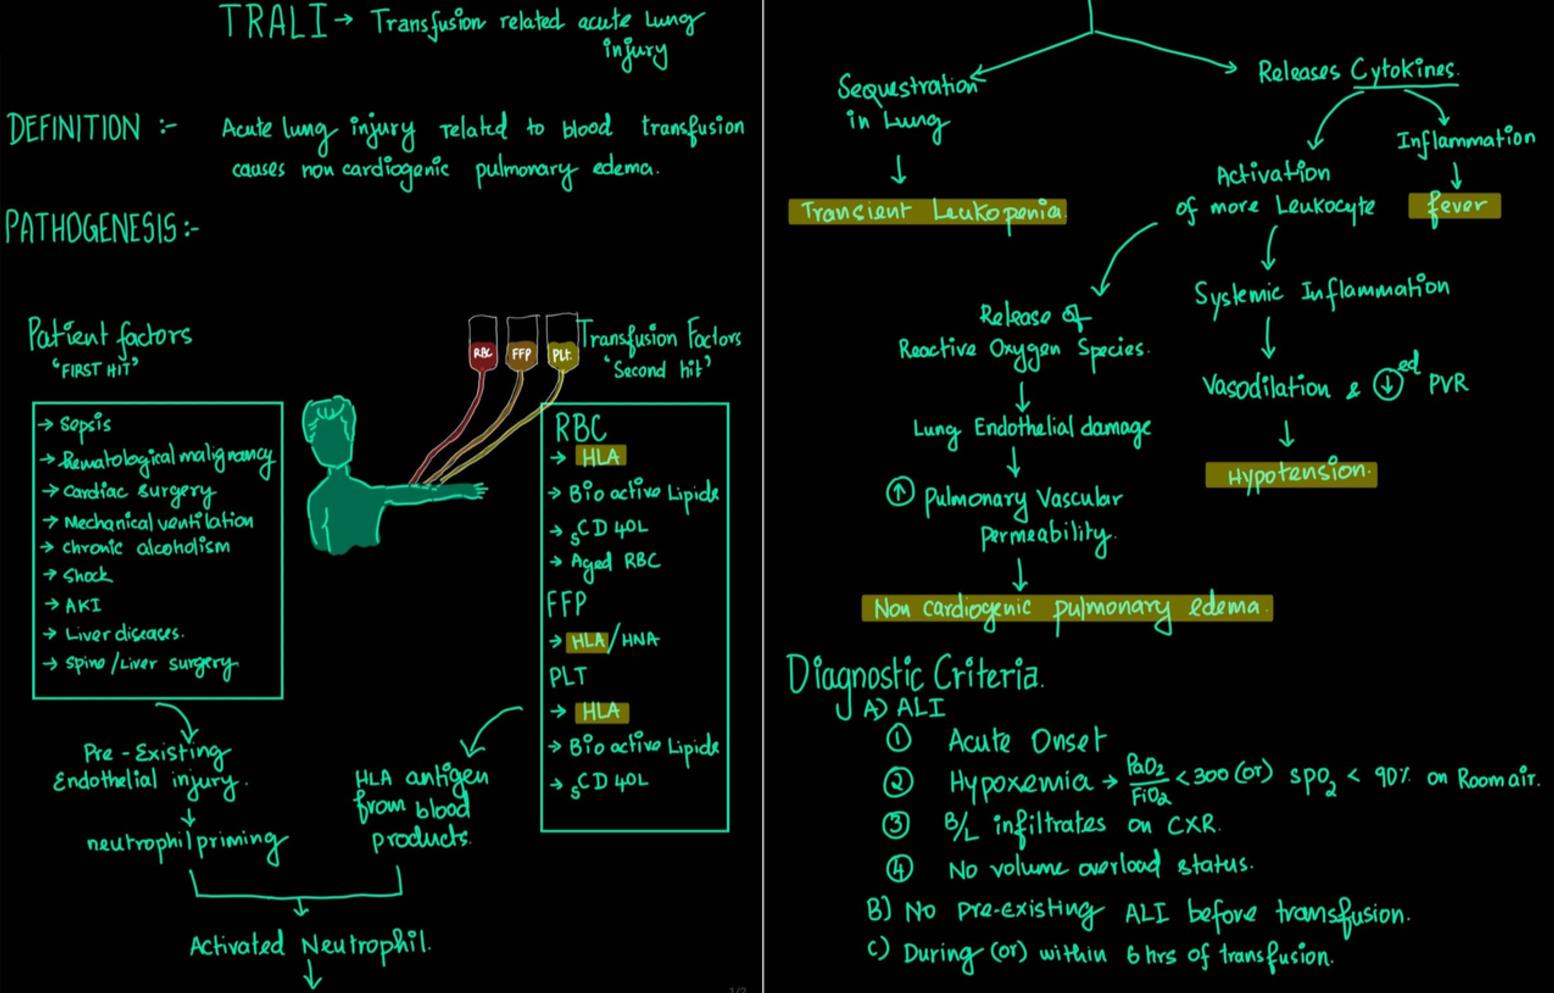 TRALI → Transfusion related acute Lung
injury
DEFINITION :- Acute lung injury related to blood transfusion
causes non cardiogenic pulmonary edema.
PATHOGENESIS :-
Patient factors
"FIRST HIT"
→ Sepsis
→ Hematological malignancy
→ Cardiac surgery
→ Mechanical ventilation
→ chronic alcoholism
→ Shock
→ AKI
→ Liver diseases.
→ Spine/Liver surgery
RBC
FFP
PLT.
Transfusion Factors
"Second hit"
RBC
→ HLA
→ Bio active Lipids
→ sCD 40L
→ Aged RBC
FFP
→ HLA/HNA
PLT
→ HLA
→ Bio active Lipids
→ sCD 40L
Pre-Existing
Endothelial injury.
↓
neutrophil priming
HLA antigen
from blood
products.
Activated Neutrophil.
↓
1/2
Sequestration
in Lung
↓
Transient Leukopenia.
Releases Cytokines.
Inflammation
↓
fever
Activation
of more Leukocyte
Release of
Reactive Oxygen Species.
↓
Lung Endothelial damage
↓
↑ Pulmonary Vascular
permeability.
↓
Non cardiogenic pulmonary edema.
Systemic Inflammation
↓
Vasodilation & ↓ed PVR
↓
Hypotension.
Diagnostic Criteria.
A) ALI
① Acute Onset
② Hypoxemia → PaO2/FiO2 < 300 (or) SPO2 < 90% on Room air.
③ B/L infiltrates on CXR.
④ No volume overload status.
B) No pre-existing ALI before transfusion.
C) During (or) within 6 hrs of transfusion.